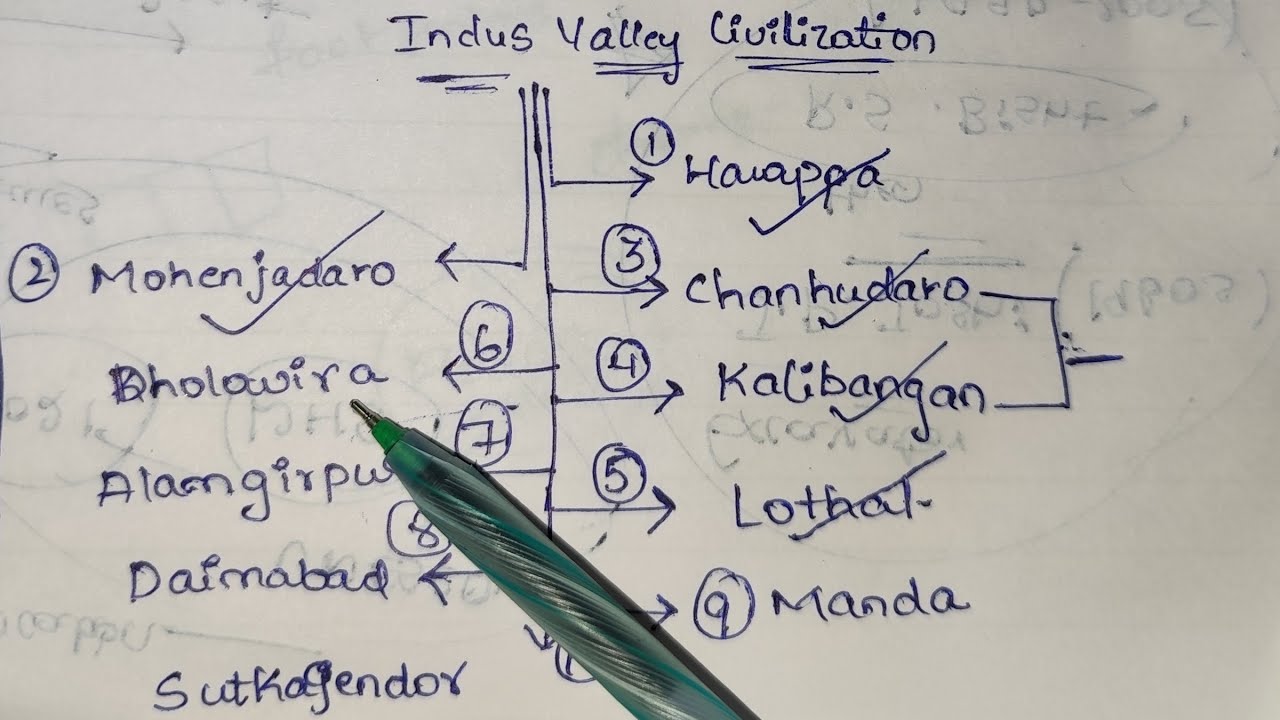 Indus Valley Civilization
① Harappa
② Mohenjadaro
③ Chanhudaro
⑥ Dholowira
④ Kalibangan
⑦ Alamgirpur
⑤ Lothal
⑧ Daimabad
⑨ Manda
Sutkagendor